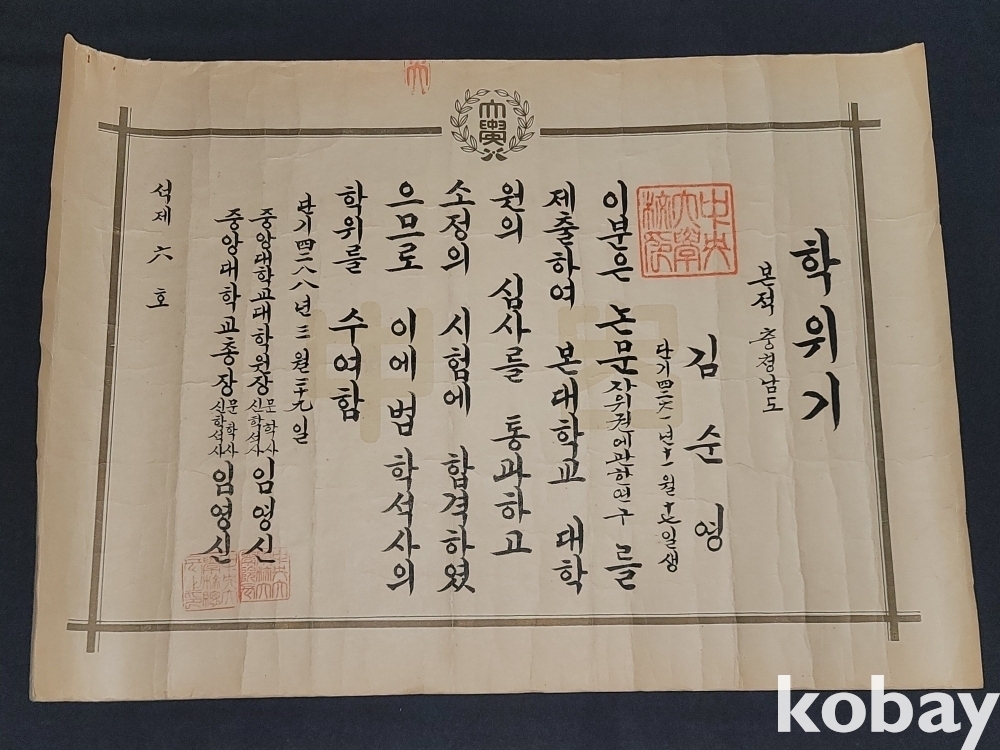 大學
학위기
본적 충청남도
김순영
단기四二六一년十一월十七일생
中央
大學
校印
이부은 논문자위권에관한연구를
제출하여 본대학교 대학
원의 심사를 통과하고
소정의 시험에 합격하였
으므로 이에 법학석사의
학위를 수여함
단기四二八八년三월二十九일
중앙대학교대학원장 문학사 신학석사 임영신
중앙대학교총장 문학사 신학석사 임영신
석제 六 호
kobay